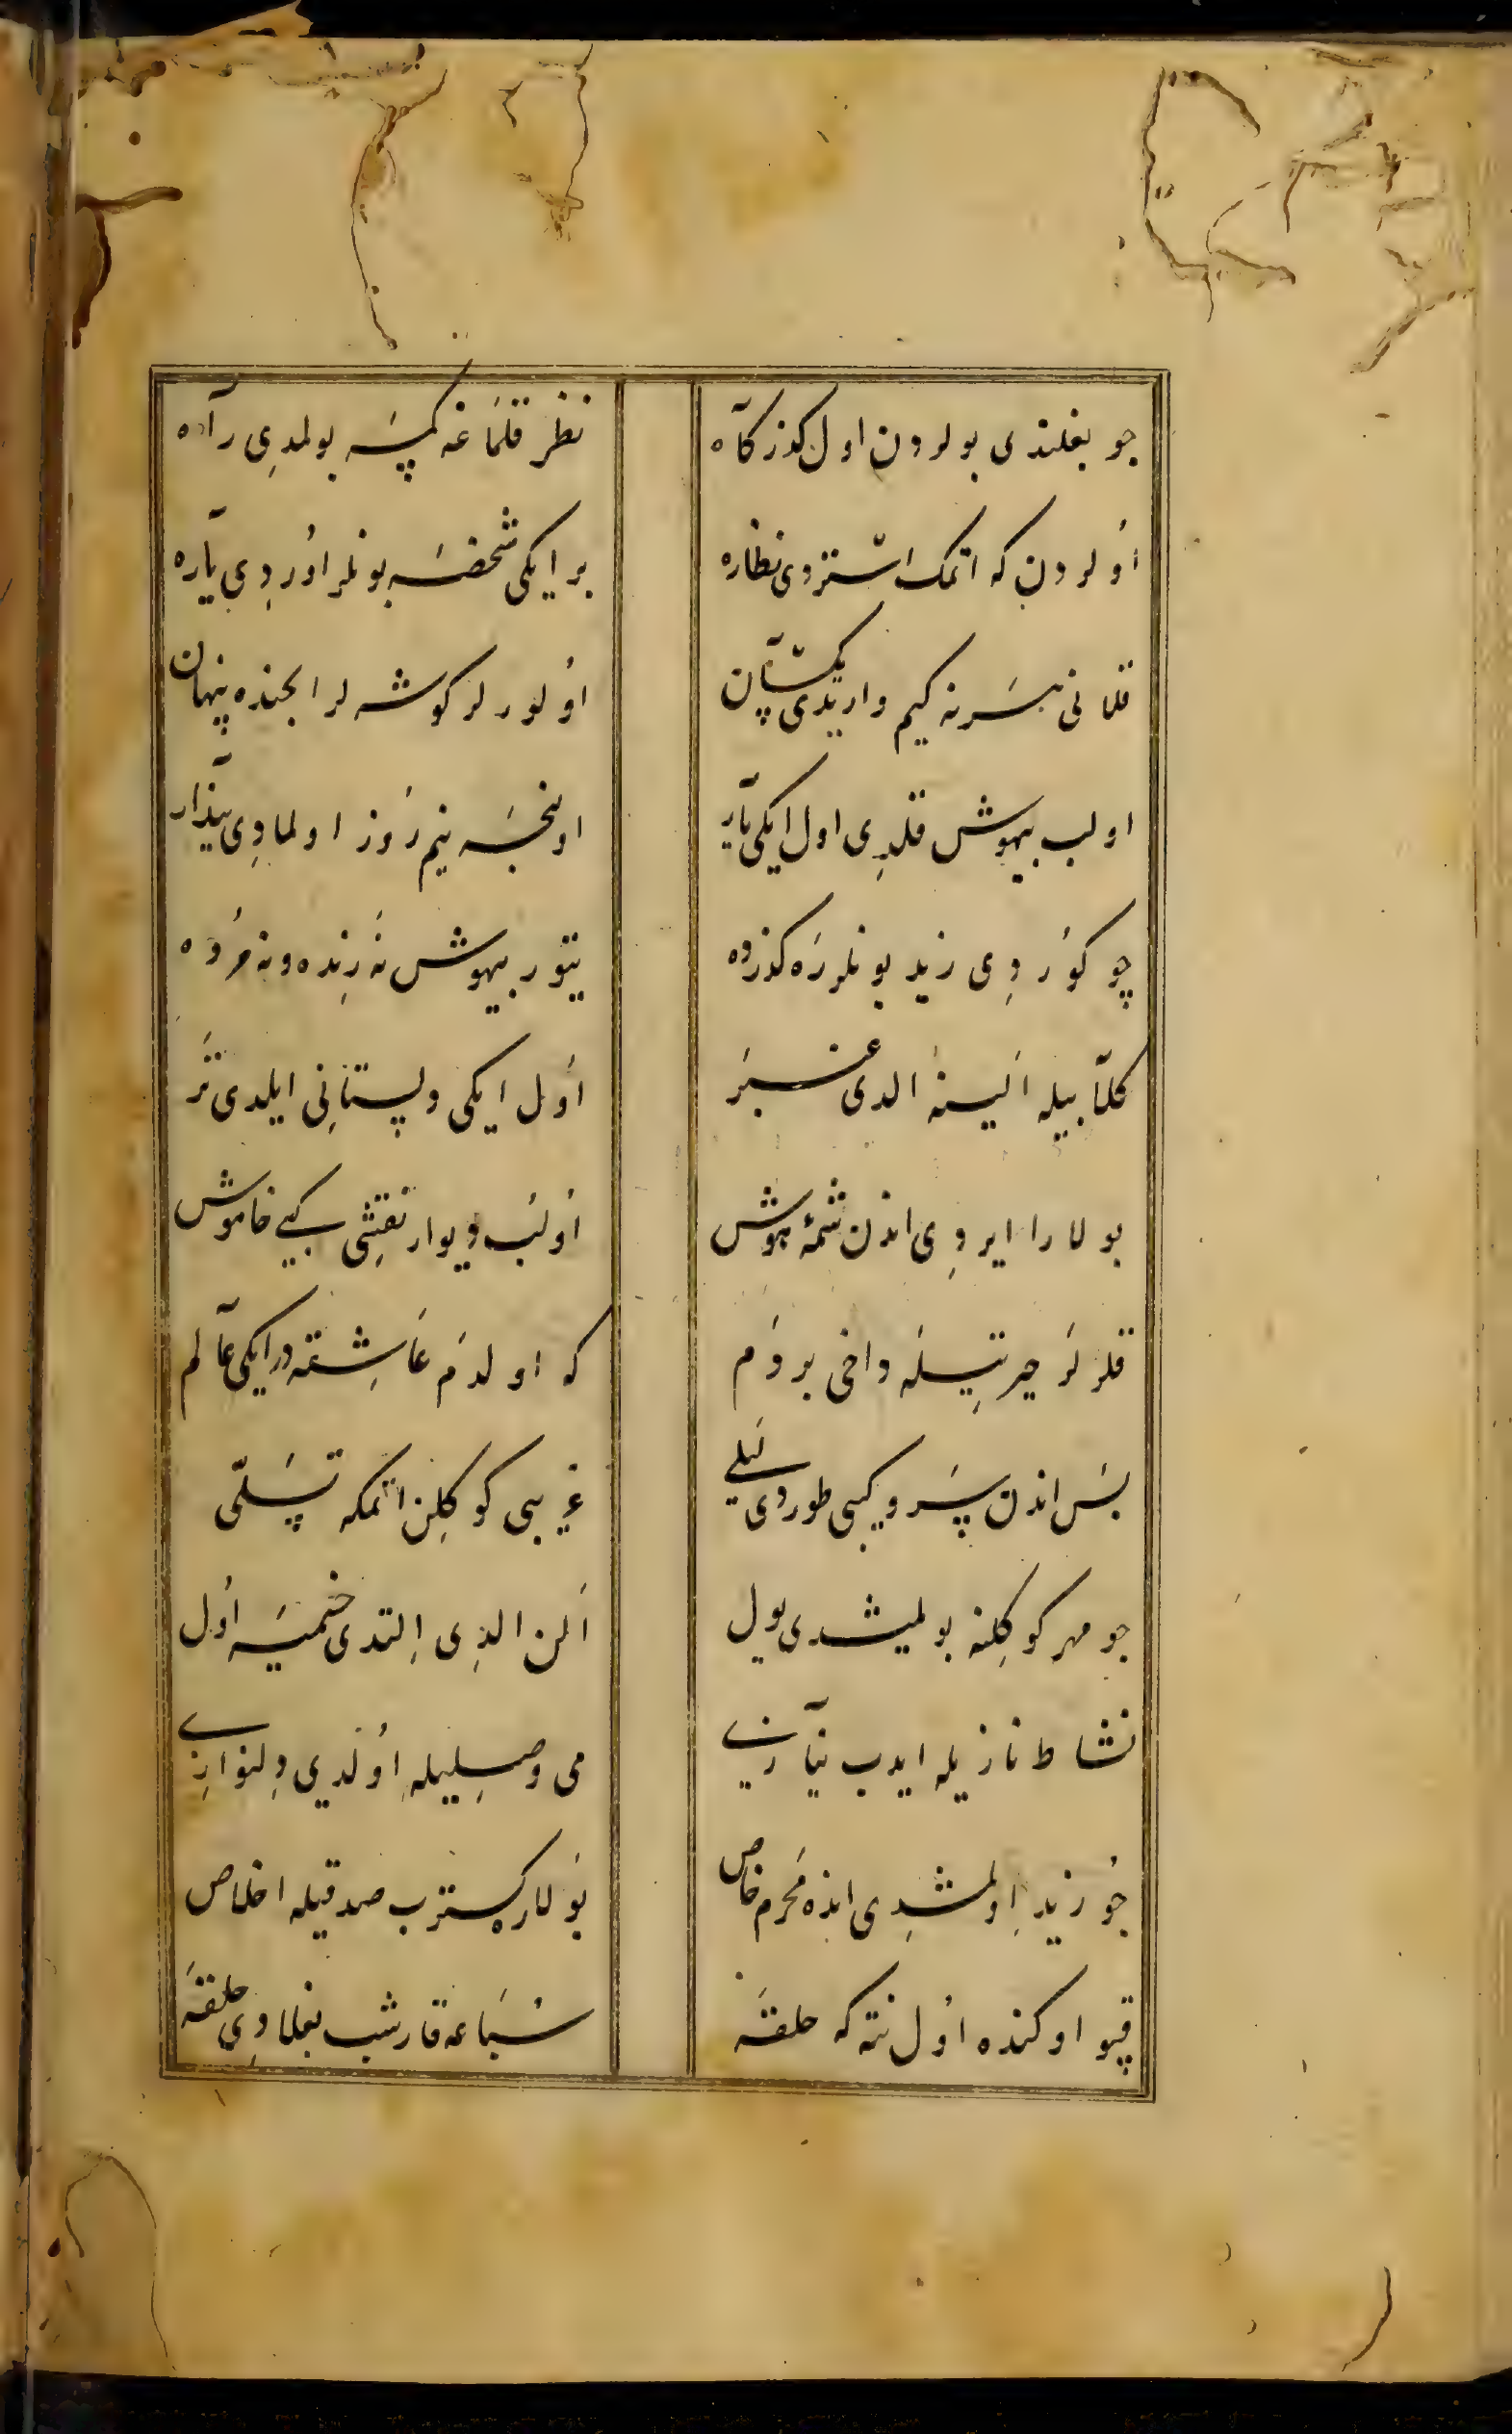 جو بغلندی بولردن اول کذرکآه نظر قلمَاغه کمسَه بولمدِی رآه
اُولردن که اتمک استزدی نظاره بر ایکی شخصَه بونلر اوُردِی یآره
قلانی هر نه کیم واریدی اُولورلر کوشه لر ایجنده پنهان
اولب بیهوش قلدِی اول ایکی یآر اولنجَه نیم رَوز اولمادِی بیدآر
چو کوُردِی زید بونلر رَه کذرده یتور بیهوش نَه زِنده و نه مرُده
کلآبیله الَینه الدی عنبرَ اوَل ایکی دلستانِی ایلدی تَر
بولارا ایردِی اندن شمۀ هوش اوُلبَ دیوار نقشِی کبی خاموش
قلرلَر حیرتِیلَه داخی بر دَم که اولدَم عَاشِقه در ایکی عآلم
بسَ اندن سَرو کبی طوردی لَیلی غریبی کوکلِن اتمکه تسَلّی
جو مهر کوکلِنه بولمیشدی یول اَلن الدِی اِلتدی خیمَیه اوُل
نشاط نازیله ایدب نیآزی می وصلِیله اوُلدی دِلنوازِی
جوُ زید اِولمشدِی انده مَحرم خاص بوَلار کستَرب صدقیله اخلاص
قپو اوکنده اوُل نته که حلقَه سَباعه قارشب بغلادِی حلقَه